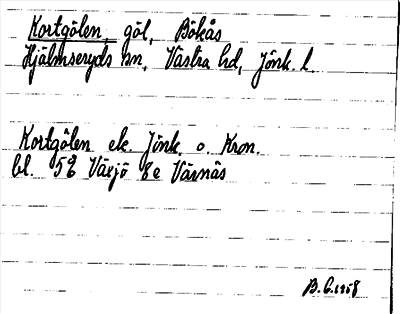 Kortgölen, göl, Bökås
Hjälmseryds sn, Västra hd, Jönk. l.
Kortgölen ek. Jönk. o. Kron.
bl. 5E Växjö 8e Värnäs
B.G. 1958